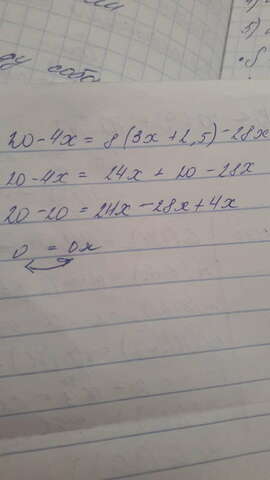 ду собо
5)
20-4x = 8(3x+2,5)-28x
20-4x = 24x + 20 - 28x
20-20 = 24x-28x+4x
0 = 0x